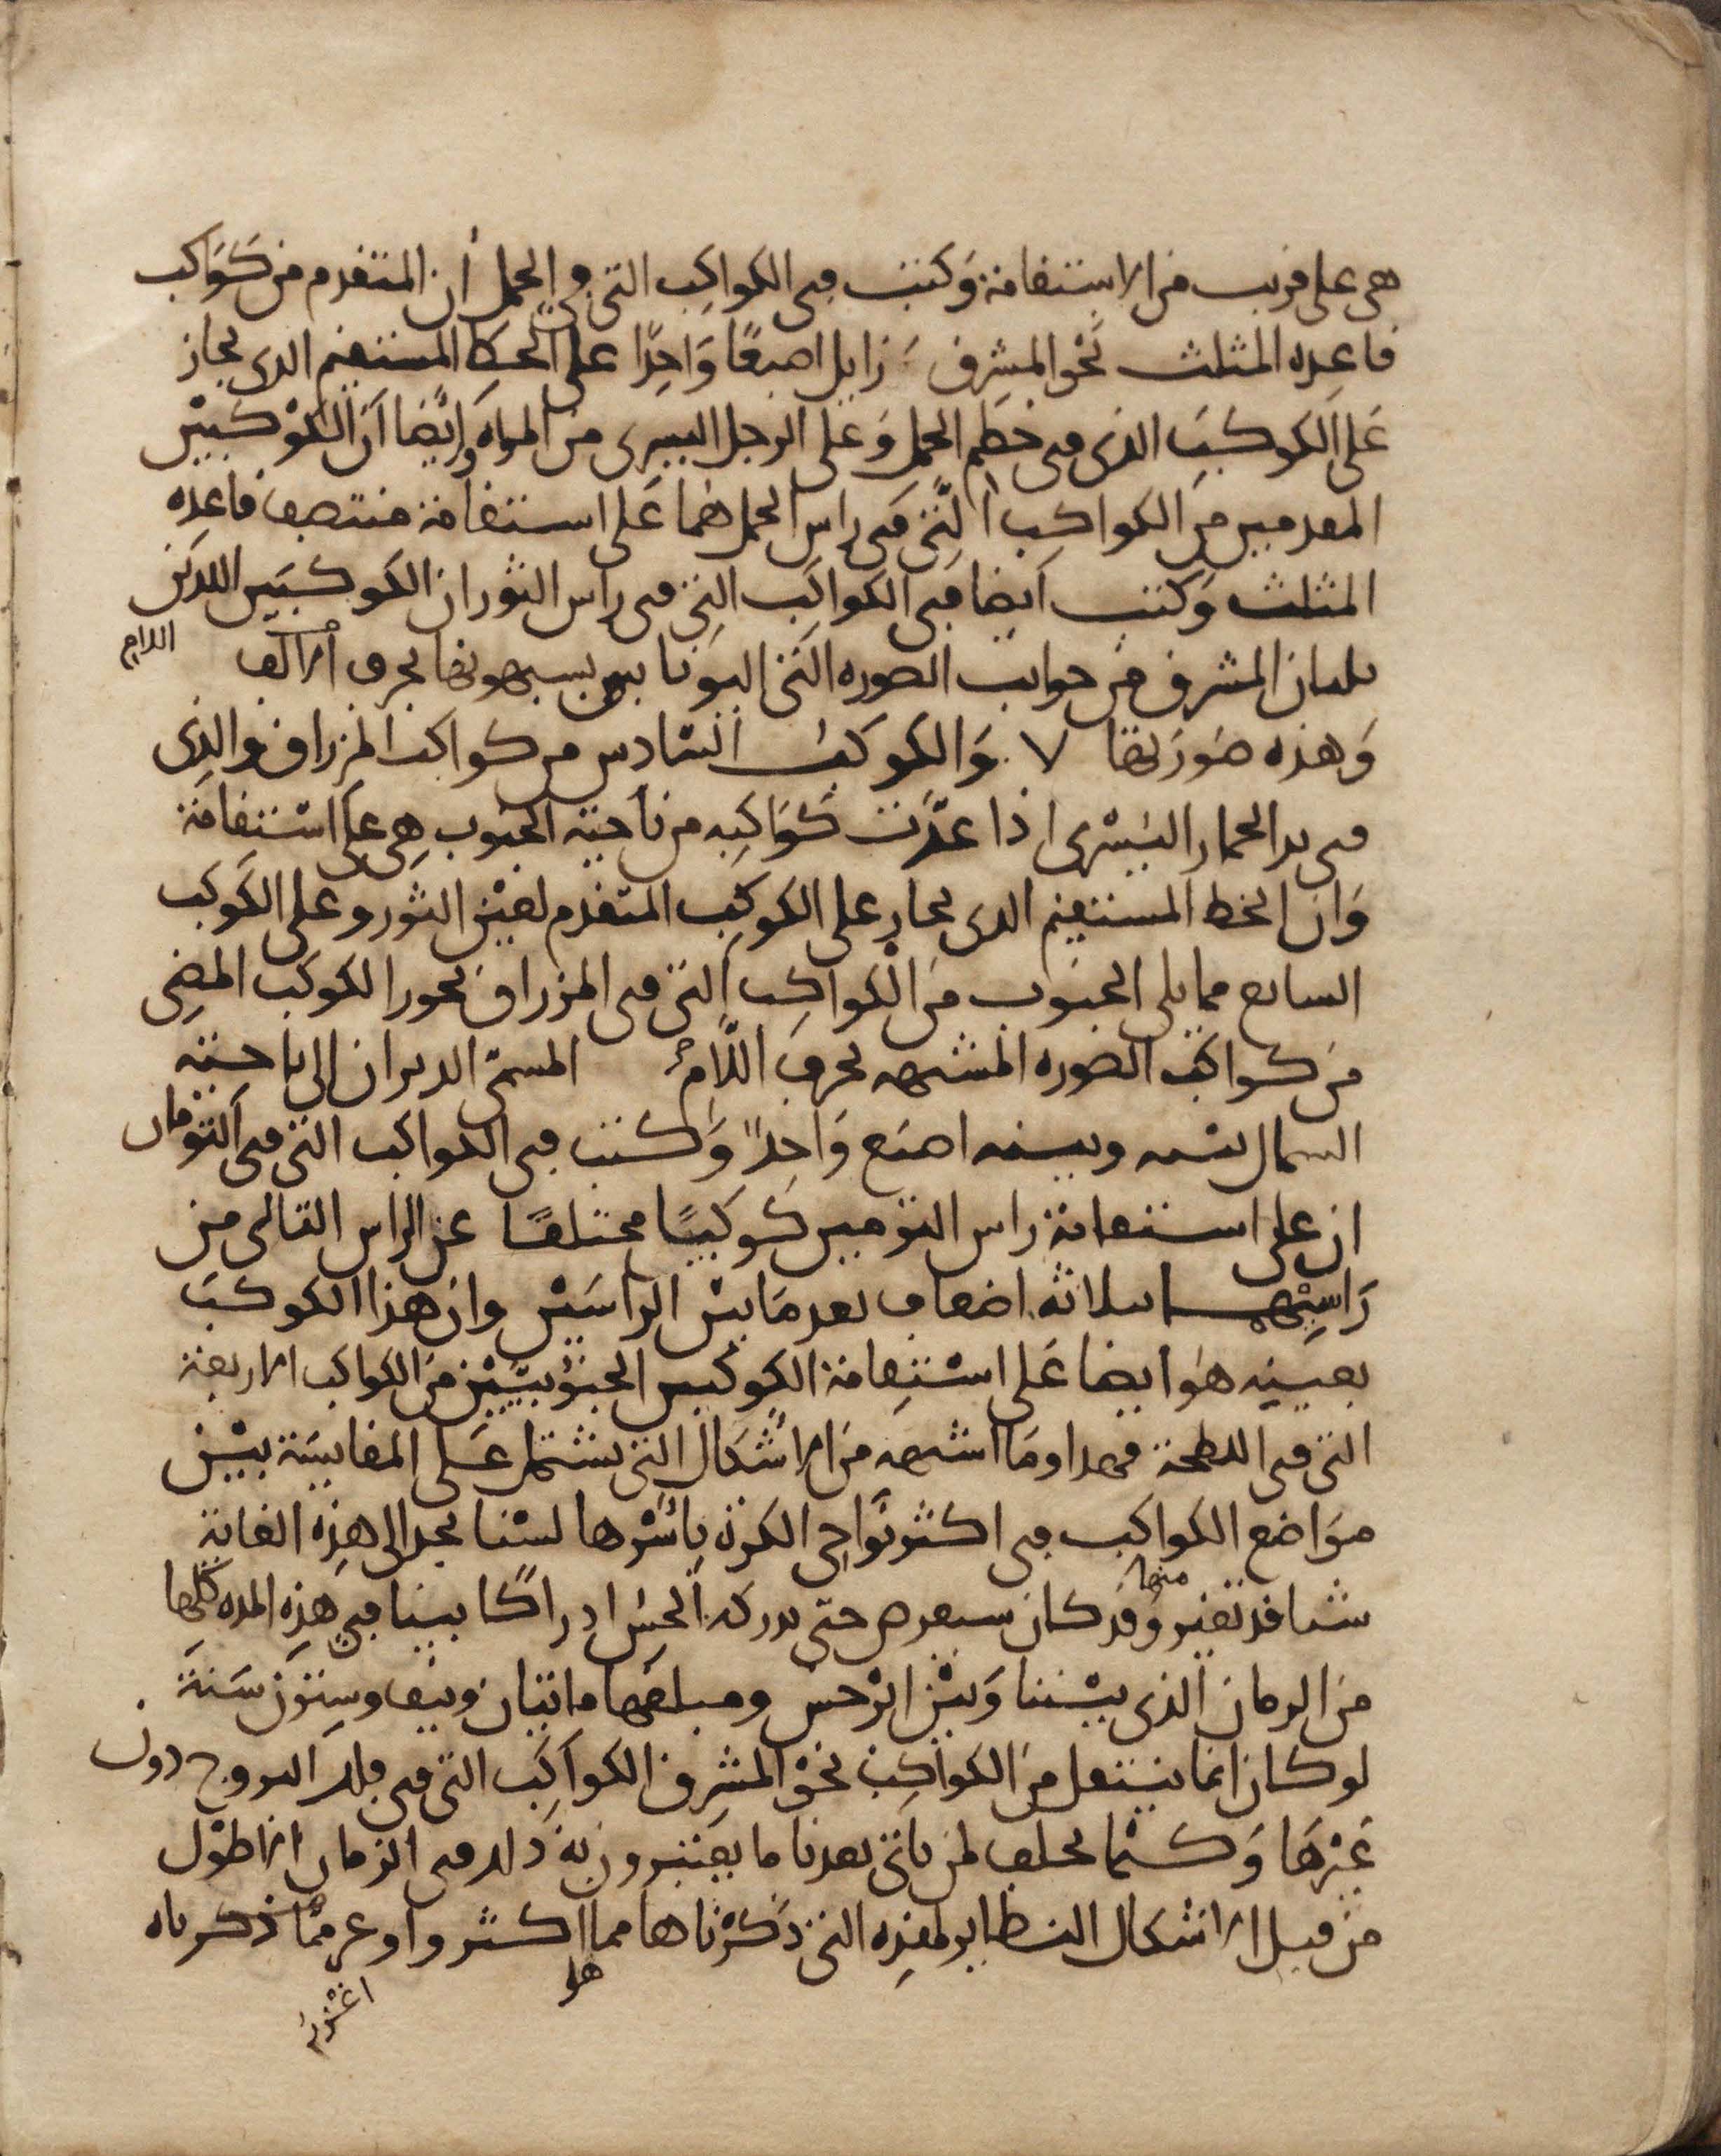 هى على قريب من الاستقامة وكتب فى الكواكب التى فى الحمل أن المتقدم من كواكب
قاعده المثلث نحو المشرق زايل اصبعًا وَاحِدًا على الخط المستقيم الدى يجاز
عَلى الكوكب الذى فى خطم الحمل وَعلى الرجل اليسرى من المراه وايضا ان الكوكبين
المقدمين من الكواكب التى فى راس الحمل هما على استقامة منتصف قاعده
المثلث وَكتب أيضا فى الكواكب التى فى راس الثور ان الكوكبين اللذين
يليان المشرق من جوانب الصوره التى اليونانيين يسبهونها بحرف الالف اللام
وَهذه صَورَتها ٧ وَالكوكب السَادس من كواكب المزراق والذى
فى يد الحمار اليسْرى اذا عدّت كَوَاكبه من ناحية الجنوب هى على استقامة
وَان الخط المستقيم الدى يجاز على الكوكب المتقدم لعين الثور وعلى الكوكب
السابع مما يلى الجنوب من الكواكب التى فى المزراق يجوز الكوكب المضى
من كواكب الصوره المشبهه بحرف اللام المسمى الدبران الى ناحية
السمال بينه وبينه اصبع وَاحدًا وَكتب فى الكواكب التى فى التومان
ان على استقامة راس التومين كوكبًا مختلفًا عن الراس التالى من
رَاسيهما بثلاثه اضعاف بعد مَا بين الراسَين وان هذا الكوكب
بعينِه هوَ ايضا عَلى استقامة الكوكبين الجنوبيّين من الكواكب الاربعة
التى فى اللطحة فهدا وما اشبهه من الاشكال التى يشتمل عَلى المقايسَة بين
موَاضع الكواكب فى اكثر نواحى الكرة بِاسْرها لسْنا نجد الى هذِه الغاية
شيا قد تغير منها وَقد كان سيعرض حتى يدركه الحس ادراكًا بينا فى هذِه المده كلها
من الزمان الذى بيننا وَبين ابرْخس ومبلغها مايتان ونيف وستون سَنة
لو كان انما ينتقل من الكواكب نحو المشرق الكواكب التى فى فلك البروج دون
غيْرها وَكيْما يخلف لمن ياتى بعدنا ما يعتبروَن به ذلك فى الزمان الاطوَل
من قبل الاشكال النظاير لهذِه التى ذكرْناها مما هو اكثر واوعر ممّا ذكرناه
اغثون